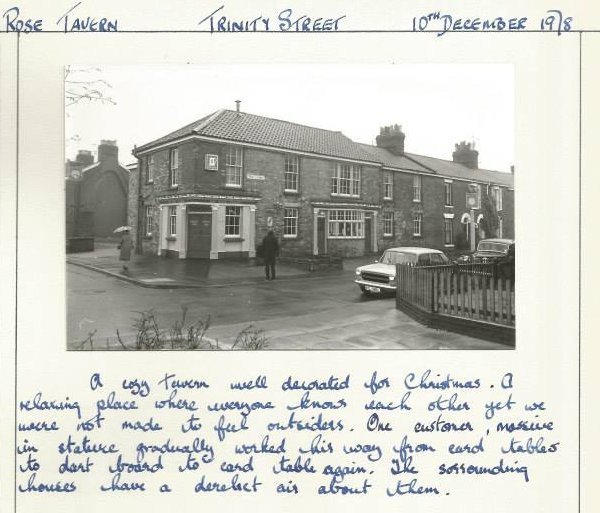 Rose Tavern Trinity Street 10TH December 1978
A cozy tavern well decorated for Christmas. A
relaxing place where everyone knows each other yet we
were not made to feel outsiders. One customer, massive
in stature gradually worked his way from card tables
to dart board to card table again. The sorrounding
houses have a derelect air about them.